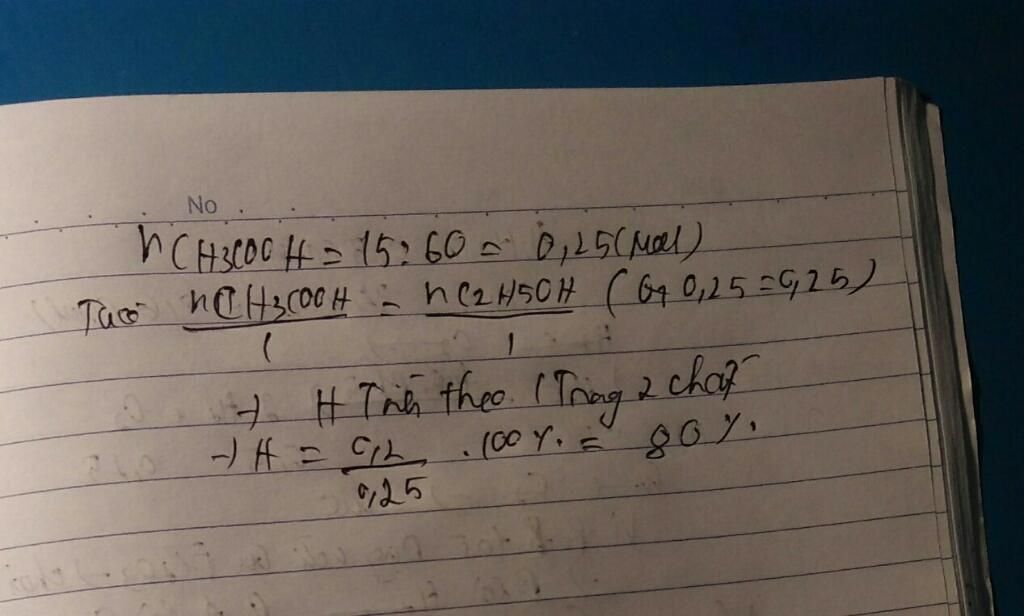 No
nCH3COOH = 15:60 = 0,25(mol)
Ta có nCH3COOH = nC2H5OH ( 0,25 = 0,25)
1 1
→ H Tính theo 1 Trong 2 chất
→ H = 0,2 .100%. = 80%.
0,25